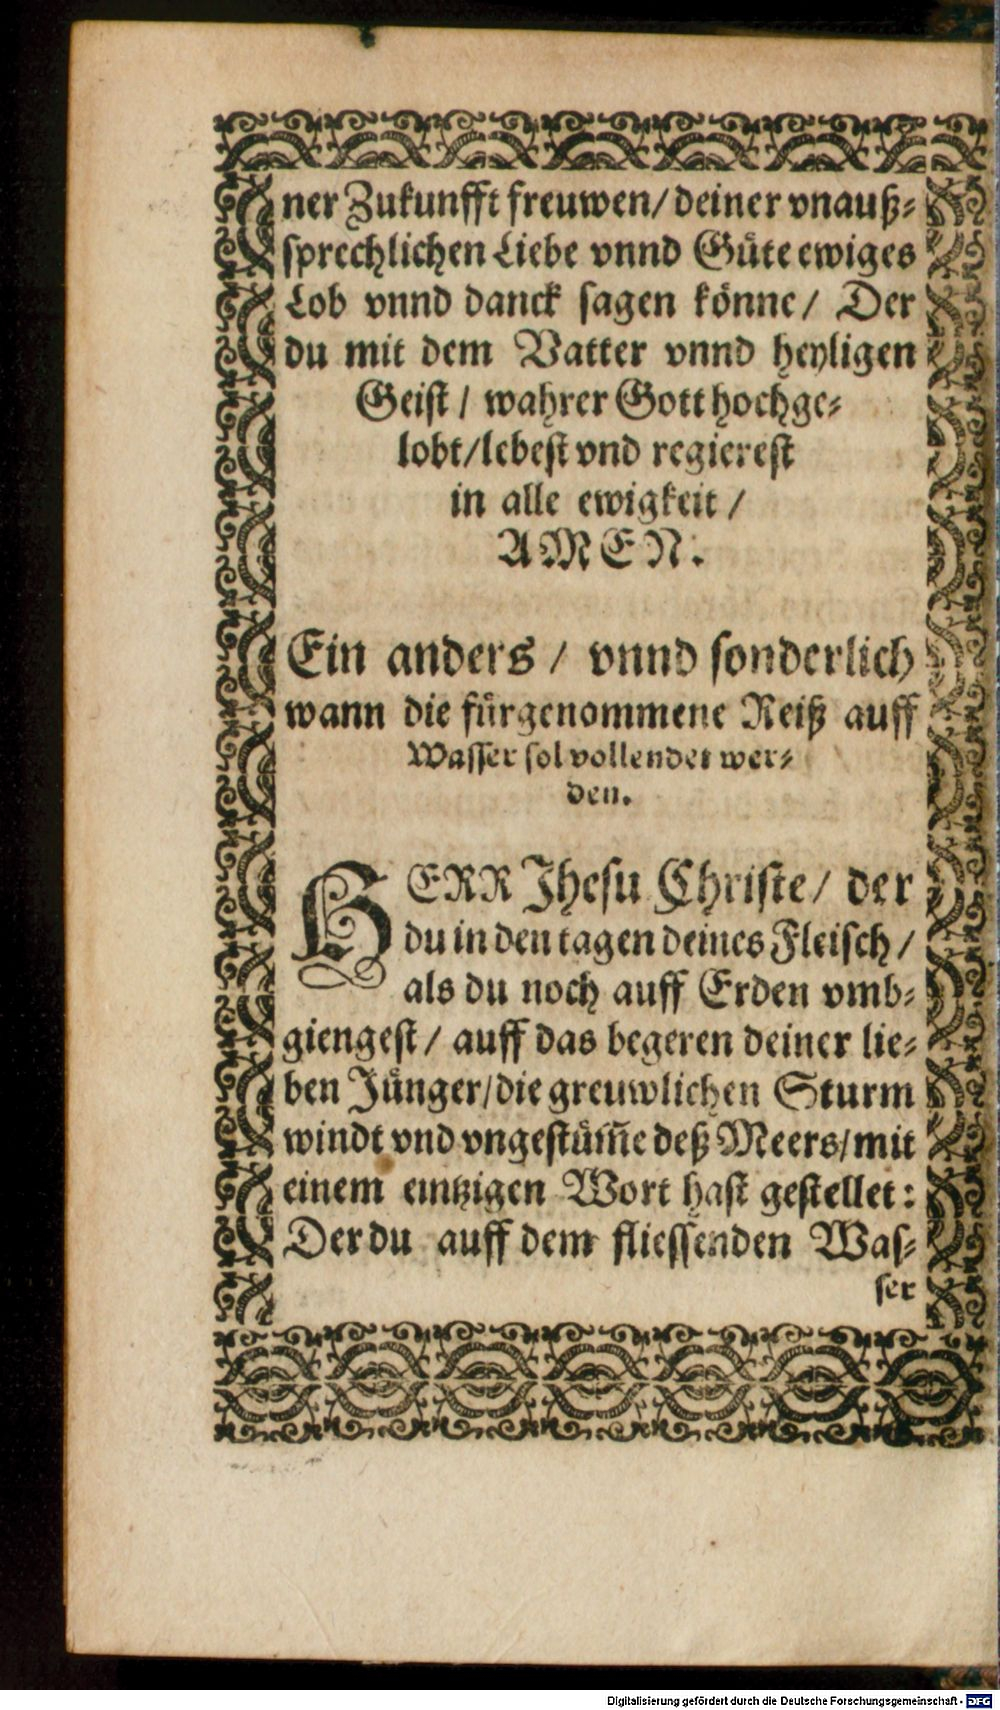 ner Zukunfft freuwen/ deiner vnauß⸗
sprechlichen Liebe vnnd Güte ewiges
Lob vnnd danck sagen könne/ Der
du mit dem Vatter vnnd heyligen
Geist / wahrer Gott hochge⸗
lobt/lebest vnd regierest
in alle ewigkeit /
AMEN.
Ein anders / vnnd sonderlich
wann die fürgenommene Reiß auff
Wasser sol vollendet wer⸗
den.
HERR Jhesu Christe/ der
du in den tagen deines Fleisch /
als du noch auff Erden vmb⸗
giengest / auff das begeren deiner lie⸗
ben Jünger/die greuwlichen Sturm
windt vnd vngestüm̃e deß Meers/mit
einem eintzigen Wort hast gestellet:
Der du auff dem fliessenden Was⸗
ser
Digitalisierung gefördert durch die Deutsche Forschungsgemeinschaft - DFG